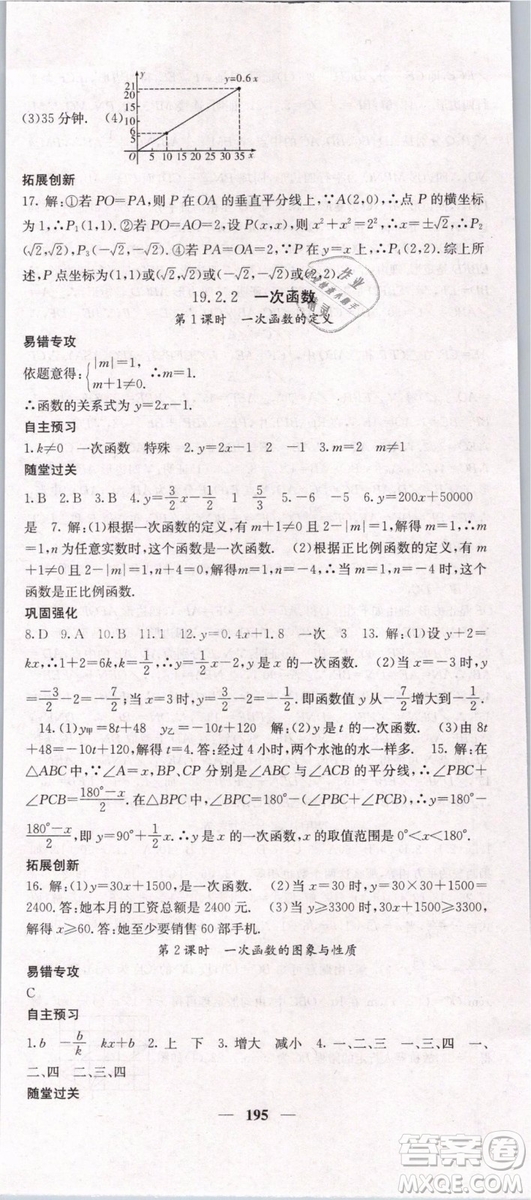 y
y=0.6x
21
20
15
10
(3)35 分钟.  (4)
6
5
0 5 8 10 15 20 25 30 35 x
拓展创新
17. 解:①若 PO=PA,则 P 在 OA 的垂直平分线上,∵A(2,0),∴点 P 的横坐标
为 1,∴P₁(1,1). ②若 PO=AO=2,设 P(x,x),则 x²+x²=2²,∴x=±√2,∴P₂
(√2,√2),P₃(-√2,-√2). ③若 PA=OA=2,则 PA⊥OA,∴P₄(2,2). 综上所
述,P 点坐标为(1,1)或(√2,√2)或(-√2,-√2)或(2,2).
19.2.2 一次函数
第 1 课时 一次函数的定义
易错专攻
依题意得:{|m|=1, m+1≠0. ∴m=1.
∴函数的关系式为 y=2x-1.
自主预习
1. k≠0 一次函数 特殊 2. y=2x-1 2 -1 3. m=2 m≠1
随堂过关
1. B 2. B 3. B 4. y=3/2x-3/2 1 5/3 5. -6 -6 6. y=200x+50000
是 7. 解:(1)根据一次函数的定义,有 m+1≠0 且 2-|m|=1,解得 m=1,∴m
=1,n 为任意实数时,这个函数是一次函数. (2)根据正比例函数的定义,有 m+
1≠0 且 2-|m|=1,n+4=0,解得 m=1,n=-4,∴当 m=1,n=-4 时,这个
函数是正比例函数.
巩固强化
8. D 9. A 10. B 11. 1 12. y=0.4x+1.8 一次 3 13. 解:(1)设 y+2=
kx,∴1+2=6k,∴k=1/2,∴y=1/2x-2,是一次函数. (2)当 x=-3 时,y=
-3/2-2=-7/2;当 x=3 时,y=3/2-2=-1/2. 即函数值从-7/2增大到-1/2.
14. (1)y甲=8t+48 y乙=-10t+120 解:(2)y 是 t 的一次函数. (3)由 8t
+48=-10t+120,得 t=4. 答:经过 4 小时,两个水池的水一样多. 15. 解:在
△ABC 中,∵∠A=x,BP、CP 分别是∠ABC 与∠ACB 的平分线,∴∠PBC+
∠PCB=(180°-x)/2. 在△PBC 中,∵∠BPC=y,∠PBC+∠PCB=180°-y,∴180°-
(180°-x)/2,即 y=90°+1/2x,∴y 是 x 的一次函数,x 的取值范围是 0°<x<180°.
拓展创新
16. 解:(1)y=30x+1500,是一次函数. (2)当 x=30 时,y=30×30+1500=
2400. 答:她本月的工资总额为 2400 元. (3)当 y≥3300 时,30x+1500≥3300,
解得 x≥60. 答:她至少要销售 60 部手机.
第 2 课时 一次函数的图象与性质
易错专攻
C
自主预习
1. b -b/k kx+b 2. 上 下 3. 增大 减小 4. 一、二、三 一、三、四 一、
二、四 二、三、四
随堂过关
195
答案圈
MXQE.COM